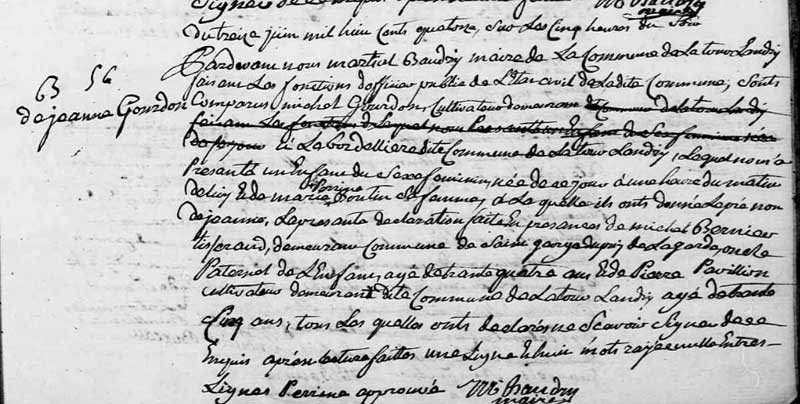 Signer de ce enquis M. Baudry
maire
Du treize juin mil huit cents quatorze, sur Les Cinq heures du Soir
Pardevant nous martiel Baudry maire de La Commune de La tour Landry
faisant Les fonctions d'officier public de L'etat civil de La dite Commune, sonts
N 56
de jeanne Gourdon
Comparus michel Gourdon, Cultivateur demeurant Commune de La tour Landry
faisant Les fonctions d Lequel nous Presanta un Enfant du Sexe feminin née
de ce jour à La bordelliere dite Commune de La tour Landry, Lequel nous a
Presanta un Enfant du Sexe feminin, née de ce jour à une heure du matin
de Luy & de marie Poutin Sa femme, & a La quelle ils ont donné Le pré non
Perine
de jeanne, La presante declaration faite En presances de michel Bernier
tisserand, demeurant Commune de Saint george du puy de La garde, oncle
Paternel de L'Enfant, agé de trante quatre ans & de Pierre Pavillion
cultivateur demeurant dite Commune de La tour Landry agé de trante
Cinq ans, tous Les quelles onts declarés ne Scavoir Signer de ce
Enquis après Lecture faittes une Ligne & huit mots rayée nulle Entres-
Lignes Perrine approuvée M. Baudry
maire